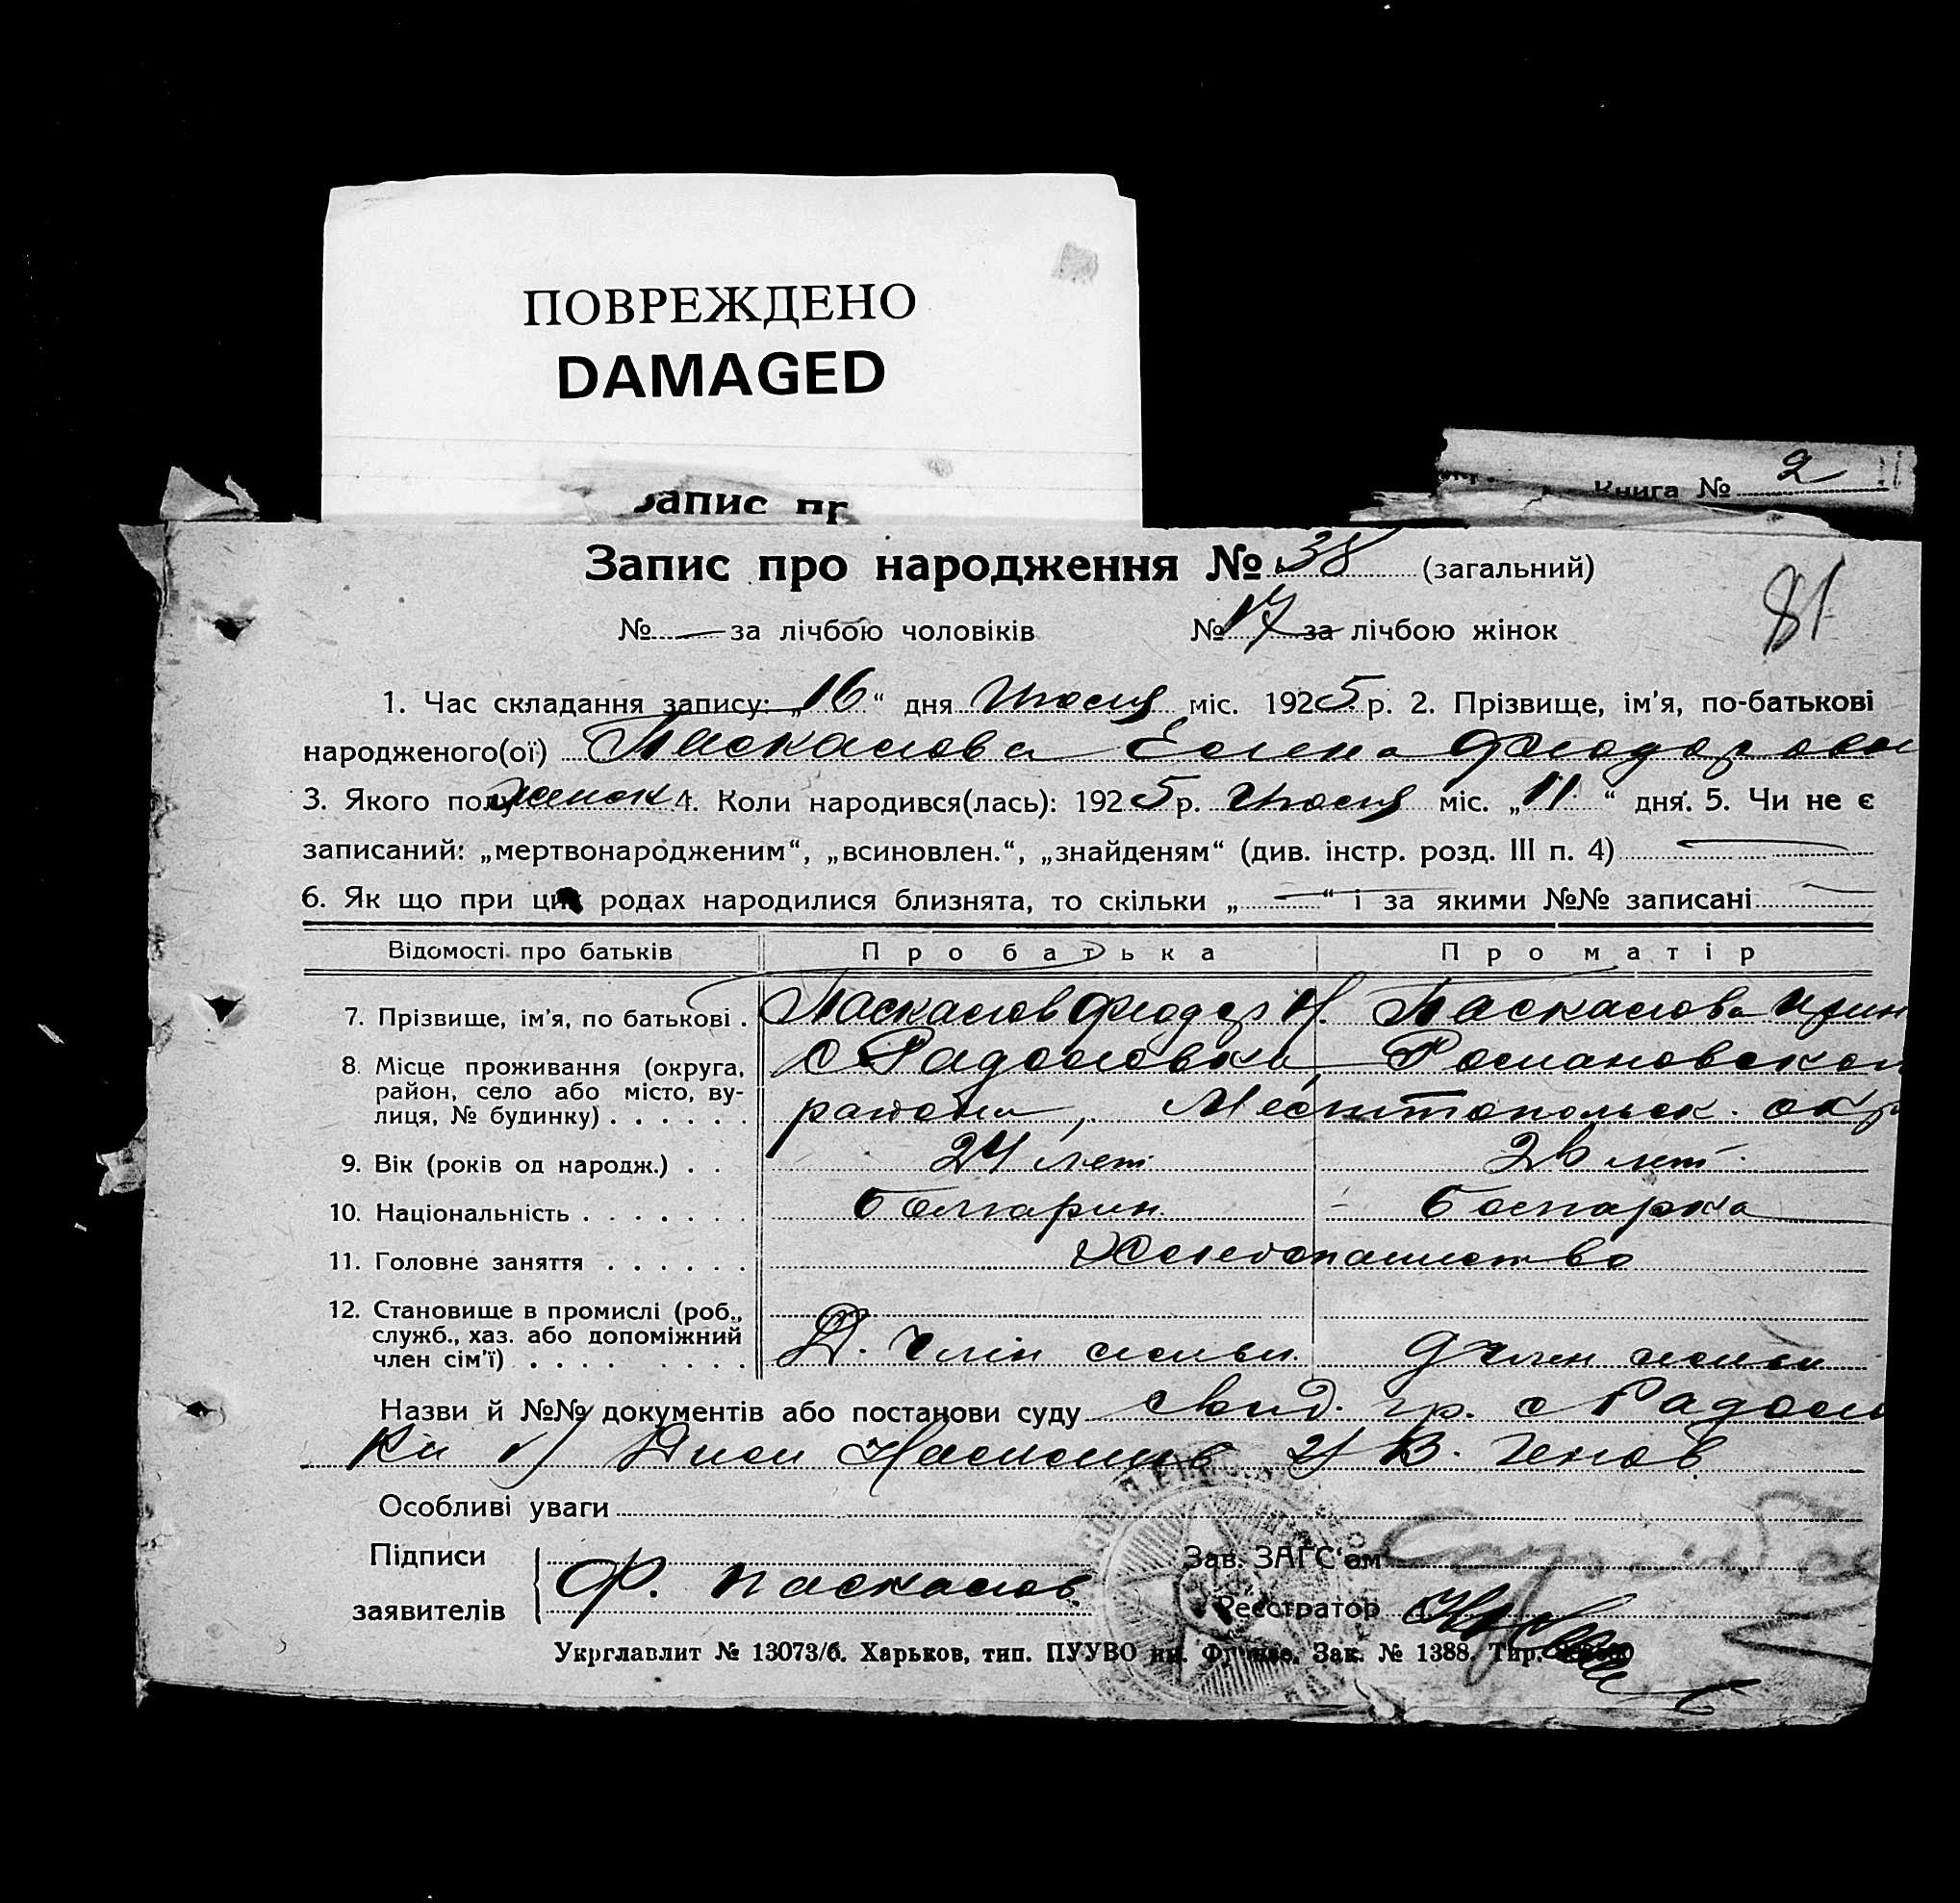 ПОВРЕЖДЕНО
DAMAGED
Запис пр
Книга № 2
Запис про народження № 38 (загальний)
81
№ — за лічбою чоловіків № 17 за лічбою жінок
1. Час складання запису: „16“ дня Июля міс. 1925 р. 2. Прізвище, ім'я, по-батькові
народженого(ої) Паскалова Елена Феодоров
3. Якого полу женск 4. Коли народився(лась): 1925 р. Июля міс. „11“ дня. 5. Чи не є
записаний: „мертвонародженим“, „всиновлен.“, „знайденям“ (див. інстр. розд. III п. 4) —
6. Як що при цих родах народилися близнята, то скільки „—“ і за якими №№ записані —
Відомості про батьків Про батька Про матір
7. Прізвище, ім'я, по батькові . Паскалов Феодор Н. Паскалова Ирин
8. Місце проживання (округа, с Радоловка Романовском
район, село або місто, ву-
лиця, № будинку) . . . . . . района, Мелитопольск. окр
9. Вік (років од народж.) . . 24 лет 26 лет
10. Національність . . . . . . . болгарин болгарка
11. Головне заняття . . . . . . Хлебопашество
12. Становище в промислі (роб.,
служб., хаз. або допоміжний
член сім'ї) . . . . . . . . . Д. член семьи. д член семьи
Назви й №№ документів або постанови суду свид. гр. с Радолов
ки 1) 2) В. Генов
Особливі уваги
Підписи
заявителів Ф. Паскалов
Зав. ЗАГС'ом
Реєстратор
Укрглавлит № 13073/б. Харьков, тип. ПУУВО им. Фрунзе. Зак. № 1388. Тир.